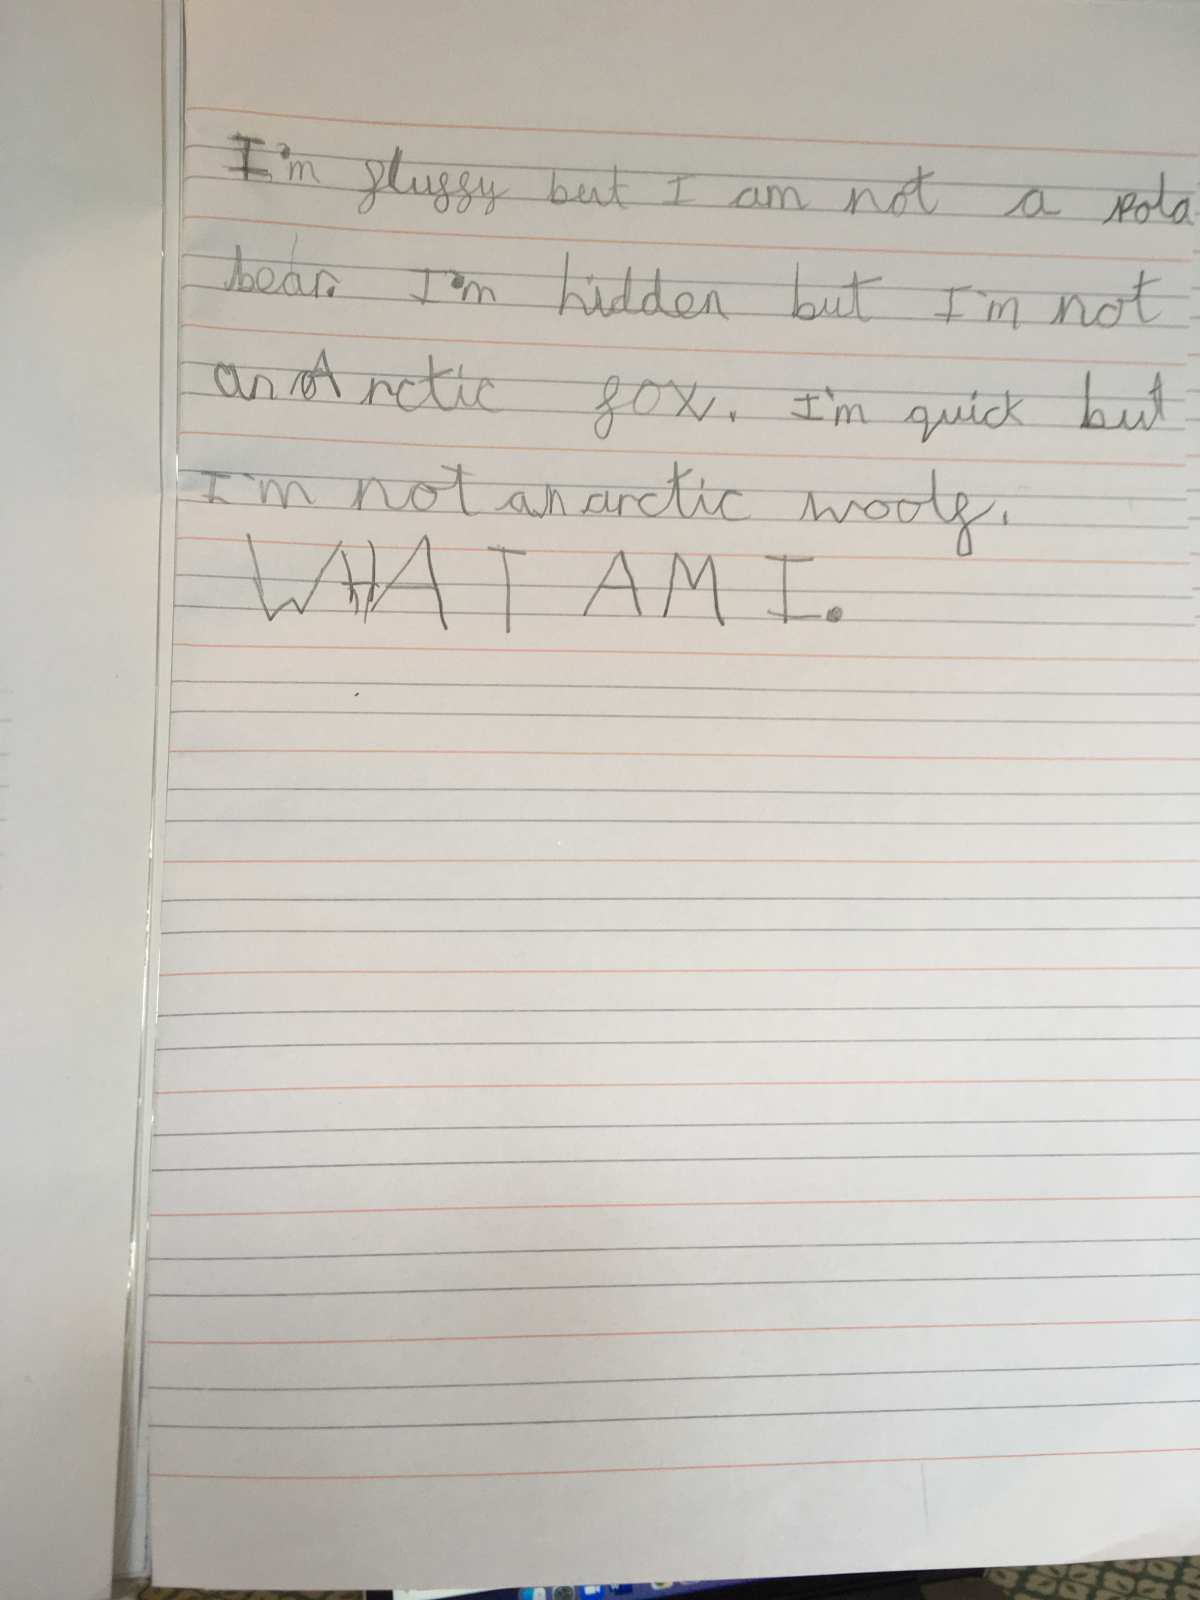 I'm fluffy but I am not a pola
bear. I'm hidden but I'm not
an Arctic fox. I'm quick but
I'm not an arctic woolf.
WHAT AM I.